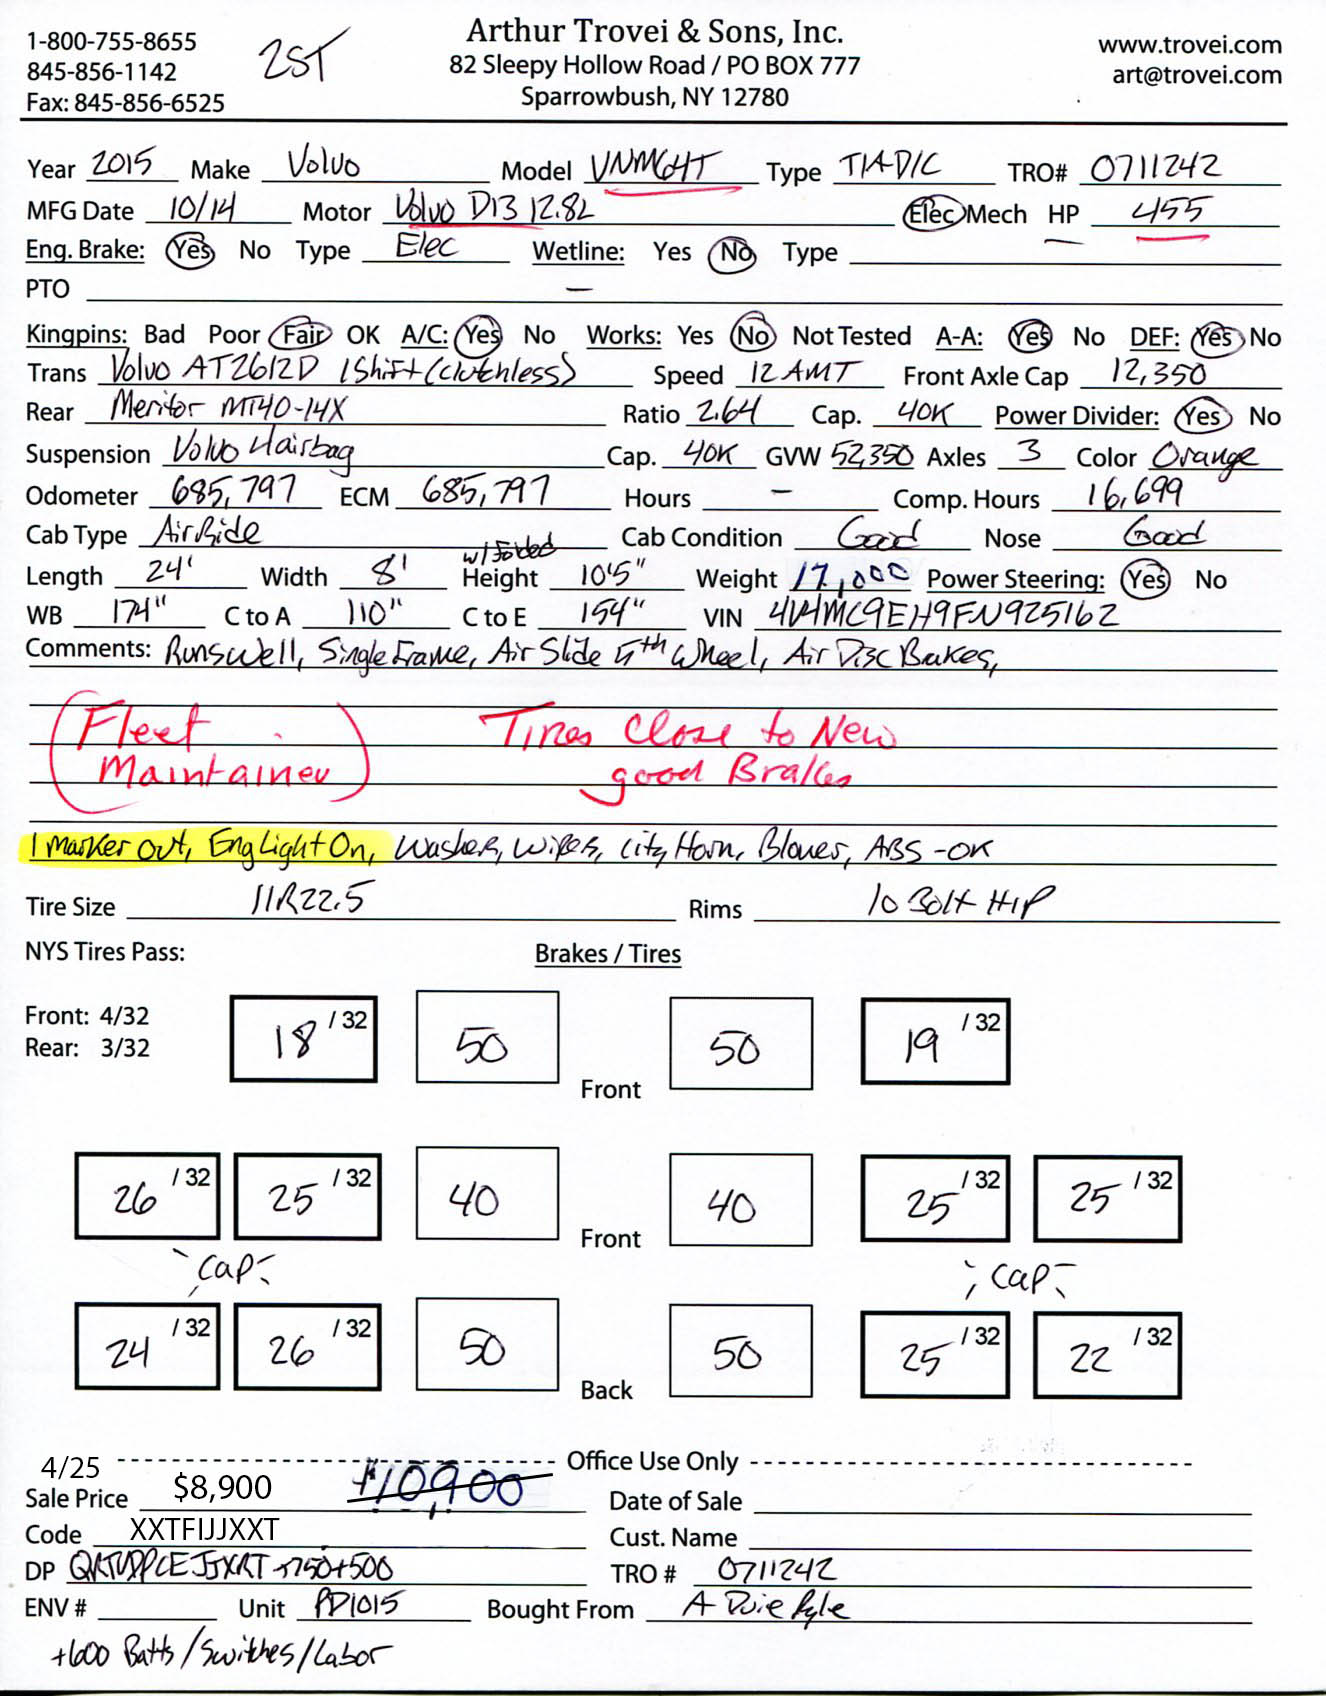 1-800-755-8655
845-856-1142
Fax: 845-856-6525
2ST
Arthur Trovei & Sons, Inc.
82 Sleepy Hollow Road / PO BOX 777
Sparrowbush, NY 12780
www.trovei.com
art@trovei.com
Year 2015 Make Volvo Model VNM64T Type T/A D/C TRO# 0711242
MFG Date 10/14 Motor Volvo D13 12.8L Elec Mech HP 455
Eng. Brake: Yes No Type Elec Wetline: Yes No Type
PTO –
Kingpins: Bad Poor Fair OK A/C: Yes No Works: Yes No Not Tested A-A: Yes No DEF: Yes No
Trans Volvo AT2612D IShift (Clutchless) Speed 12 AMT Front Axle Cap 12,350
Rear Meritor MT40-14X Ratio 2.64 Cap. 40K Power Divider: Yes No
Suspension Volvo 4airbag Cap. 40K GVW 52,350 Axles 3 Color Orange
Odometer 685,797 ECM 685,797 Hours – Comp. Hours 16,699
Cab Type AirRide Cab Condition Good Nose Good
w/ Folded
Length 24' Width 8' Height 10'5" Weight 17,000 Power Steering: Yes No
WB 174" C to A 110" C to E 154" VIN 4V4MC9EH9FN925162
Comments: Runs Well, Single Frame, Air Slide 5th Wheel, Air Disc Brakes,
(Fleet Maintainer) Tires Close to New
good Brakes
1 marker out, Eng Light On, Washers, Wipers, City Horn, Blower, ABS - OK
Tire Size 11R22.5 Rims 10 Bolt HP
NYS Tires Pass: Brakes / Tires
Front: 4/32
Rear: 3/32
18 /32 50 50 19 /32
Front
26 /32 25 /32 40 40 25 /32 25 /32
Front
Cap Cap
24 /32 26 /32 50 50 25 /32 22 /32
Back
4/25 Office Use Only
Sale Price $8,900 $10,900 Date of Sale
Code XXTFIJJXXT Cust. Name
DP +750+500 TRO # 0711242
ENV # Unit PD1015 Bought From A Duie Pyle
+600 Batts / Switches / Labor